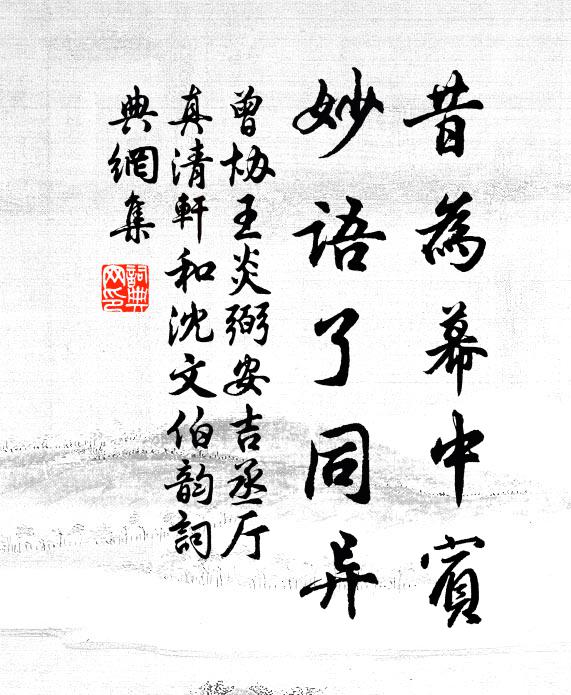 昔為幕中賓
妙語了同异
曾协王炎弼安吉丞厅
真清軒和沈文伯韵詞
典網集
詞典网印